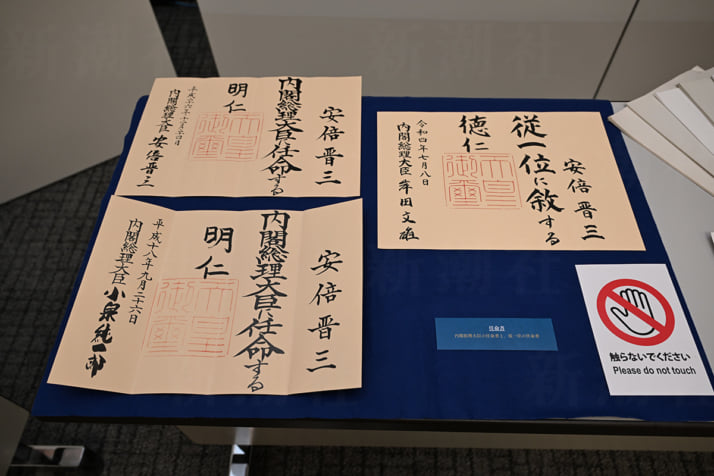 安倍晋三
内閣総理大臣に任命する
明仁
天皇
御璽
内閣総理大臣 安倍晋三
安倍晋三
従一位に叙する
徳仁
天皇
御璽
令和四年七月八日
内閣総理大臣 岸田文雄
安倍晋三
内閣総理大臣に任命する
明仁
天皇
御璽
平成十八年九月二十六日
内閣総理大臣 小泉純一郎
任命書
触らないでください
Please do not touch
新潮社